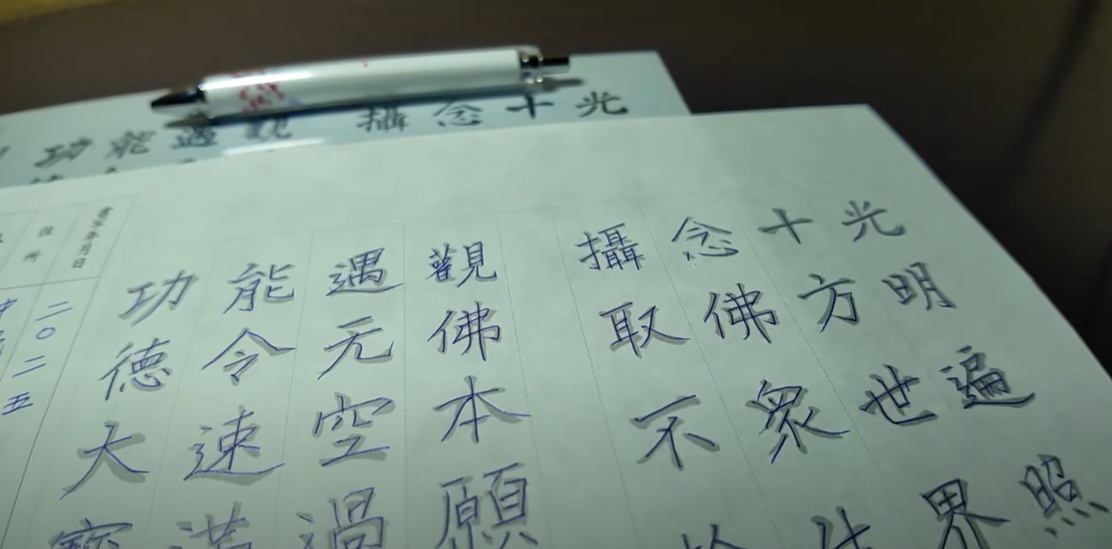 光明遍照
十方世界
念佛衆
攝取不
觀佛本願
遇元空過
能令速満
功徳大寶
二〇二五
住所
光
十
念
攝
觀
遇
能
功